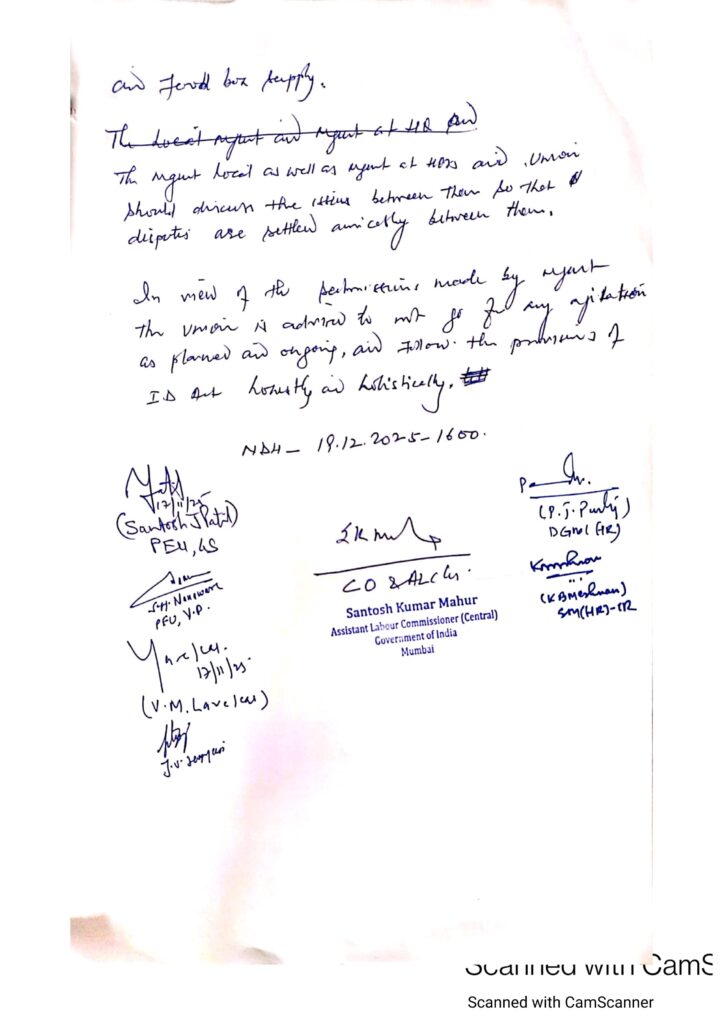 and Food box supply.
The Local mgmt and mgmt at HR and
The mgmt local as well as mgmt at HPDs and Union
should discuss the issues between them so that
disputes are settled amicably between them.
In view of the submissions made by mgmt
the union is advised to not go for any agitation
as planned and ongoing, and follow the provisions of
ID Act honestly and holistically.
NDH - 19.12.2025 - 1600.
17/11/25
(Santosh J Patil)
PEU, GS
P.J.
DGM (HR)
CO & ALC
Santosh Kumar Mahur
Assistant Labour Commissioner (Central)
Government of India
Mumbai
S.H.
PEU, V.P.
(KB Meshram)
SM(HR)-IR
17/11/25.
(V.M. Lavekar)
J.V.
Scanned with CamS
Scanned with CamScanner